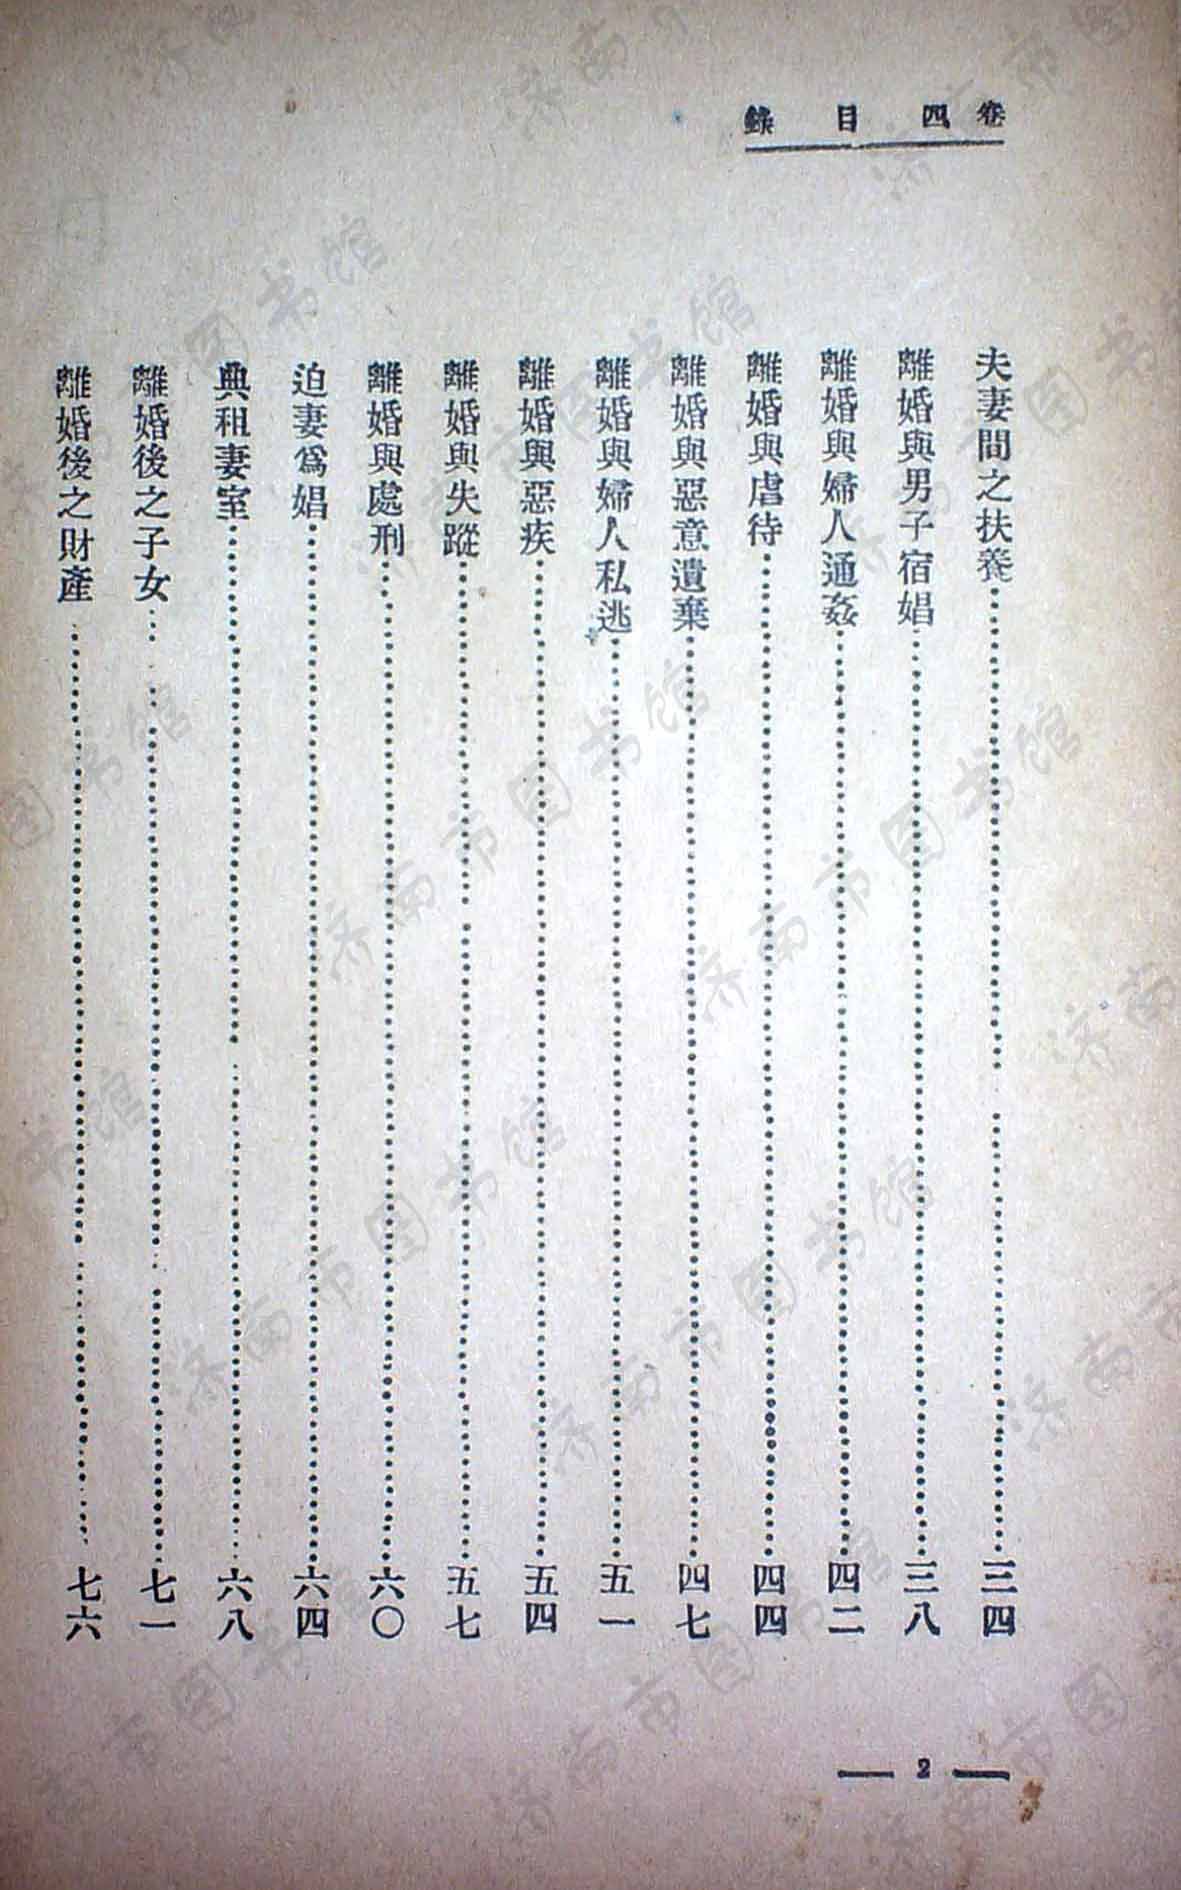 卷四目錄
夫妻間之扶養……三四
離婚與男子宿娼……三八
離婚與婦人通姦……四二
離婚與虐待……四四
離婚與惡意遺棄……四七
離婚與婦人私逃……五一
離婚與惡疾……五四
離婚與失蹤……五七
離婚與處刑……六〇
迫妻爲娼……六四
典租妻室……六八
離婚後之子女……七一
離婚後之財產……七六
— 2 —
济南市图书馆